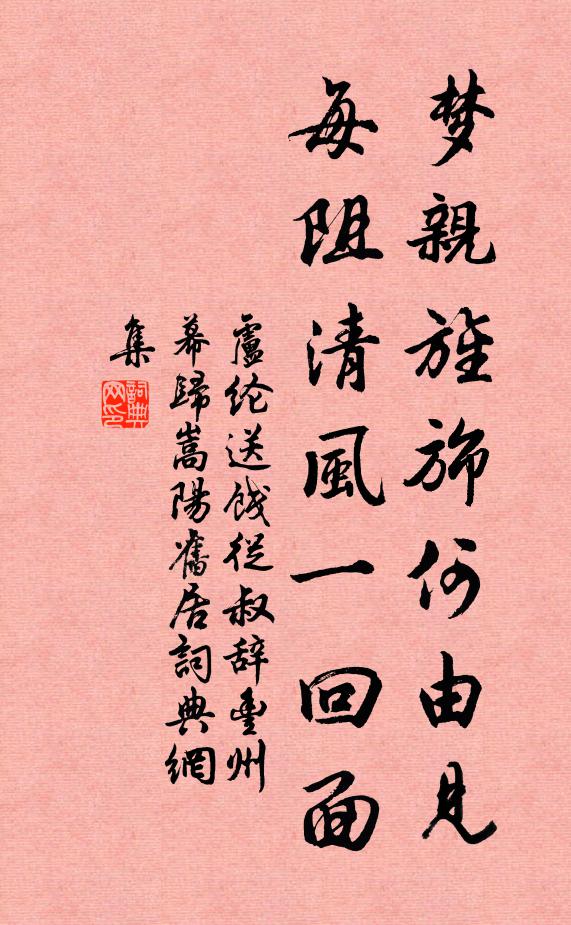 梦親旌旆何由见
每阻清風一回面
盧纶送饯從叔辞豐州
幕歸嵩陽舊居詞典網
集
詞典
网印